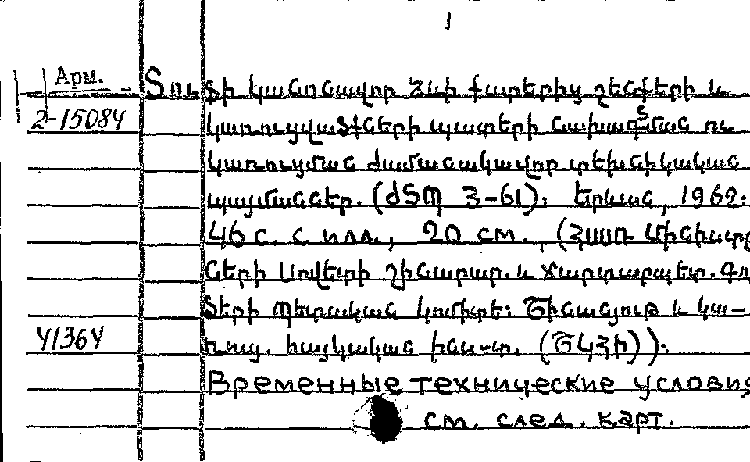 1
Арм. Տուֆի կանոնավոր ձևի քարերից շենքերի և
2-15084 կառուցվածքների պատերի նախագծման ու
կառուցման ժամանակավոր տեխնիկական
պայմաններ. (ԺՏՊ 3-61): Երևան, 1962:
46 с. с илл., 20 см., (ՀՍՍՌ Մինիստր
ների Սովետի շինարար. և ճարտարապետ. Գոր
ծերի Պետական կոմիտե: Շինանյութ և կա-
41364 ռույ. հայկական ինս-տ. (ՇԿՀԻ)):
Временные технические условия
см. след. карт.